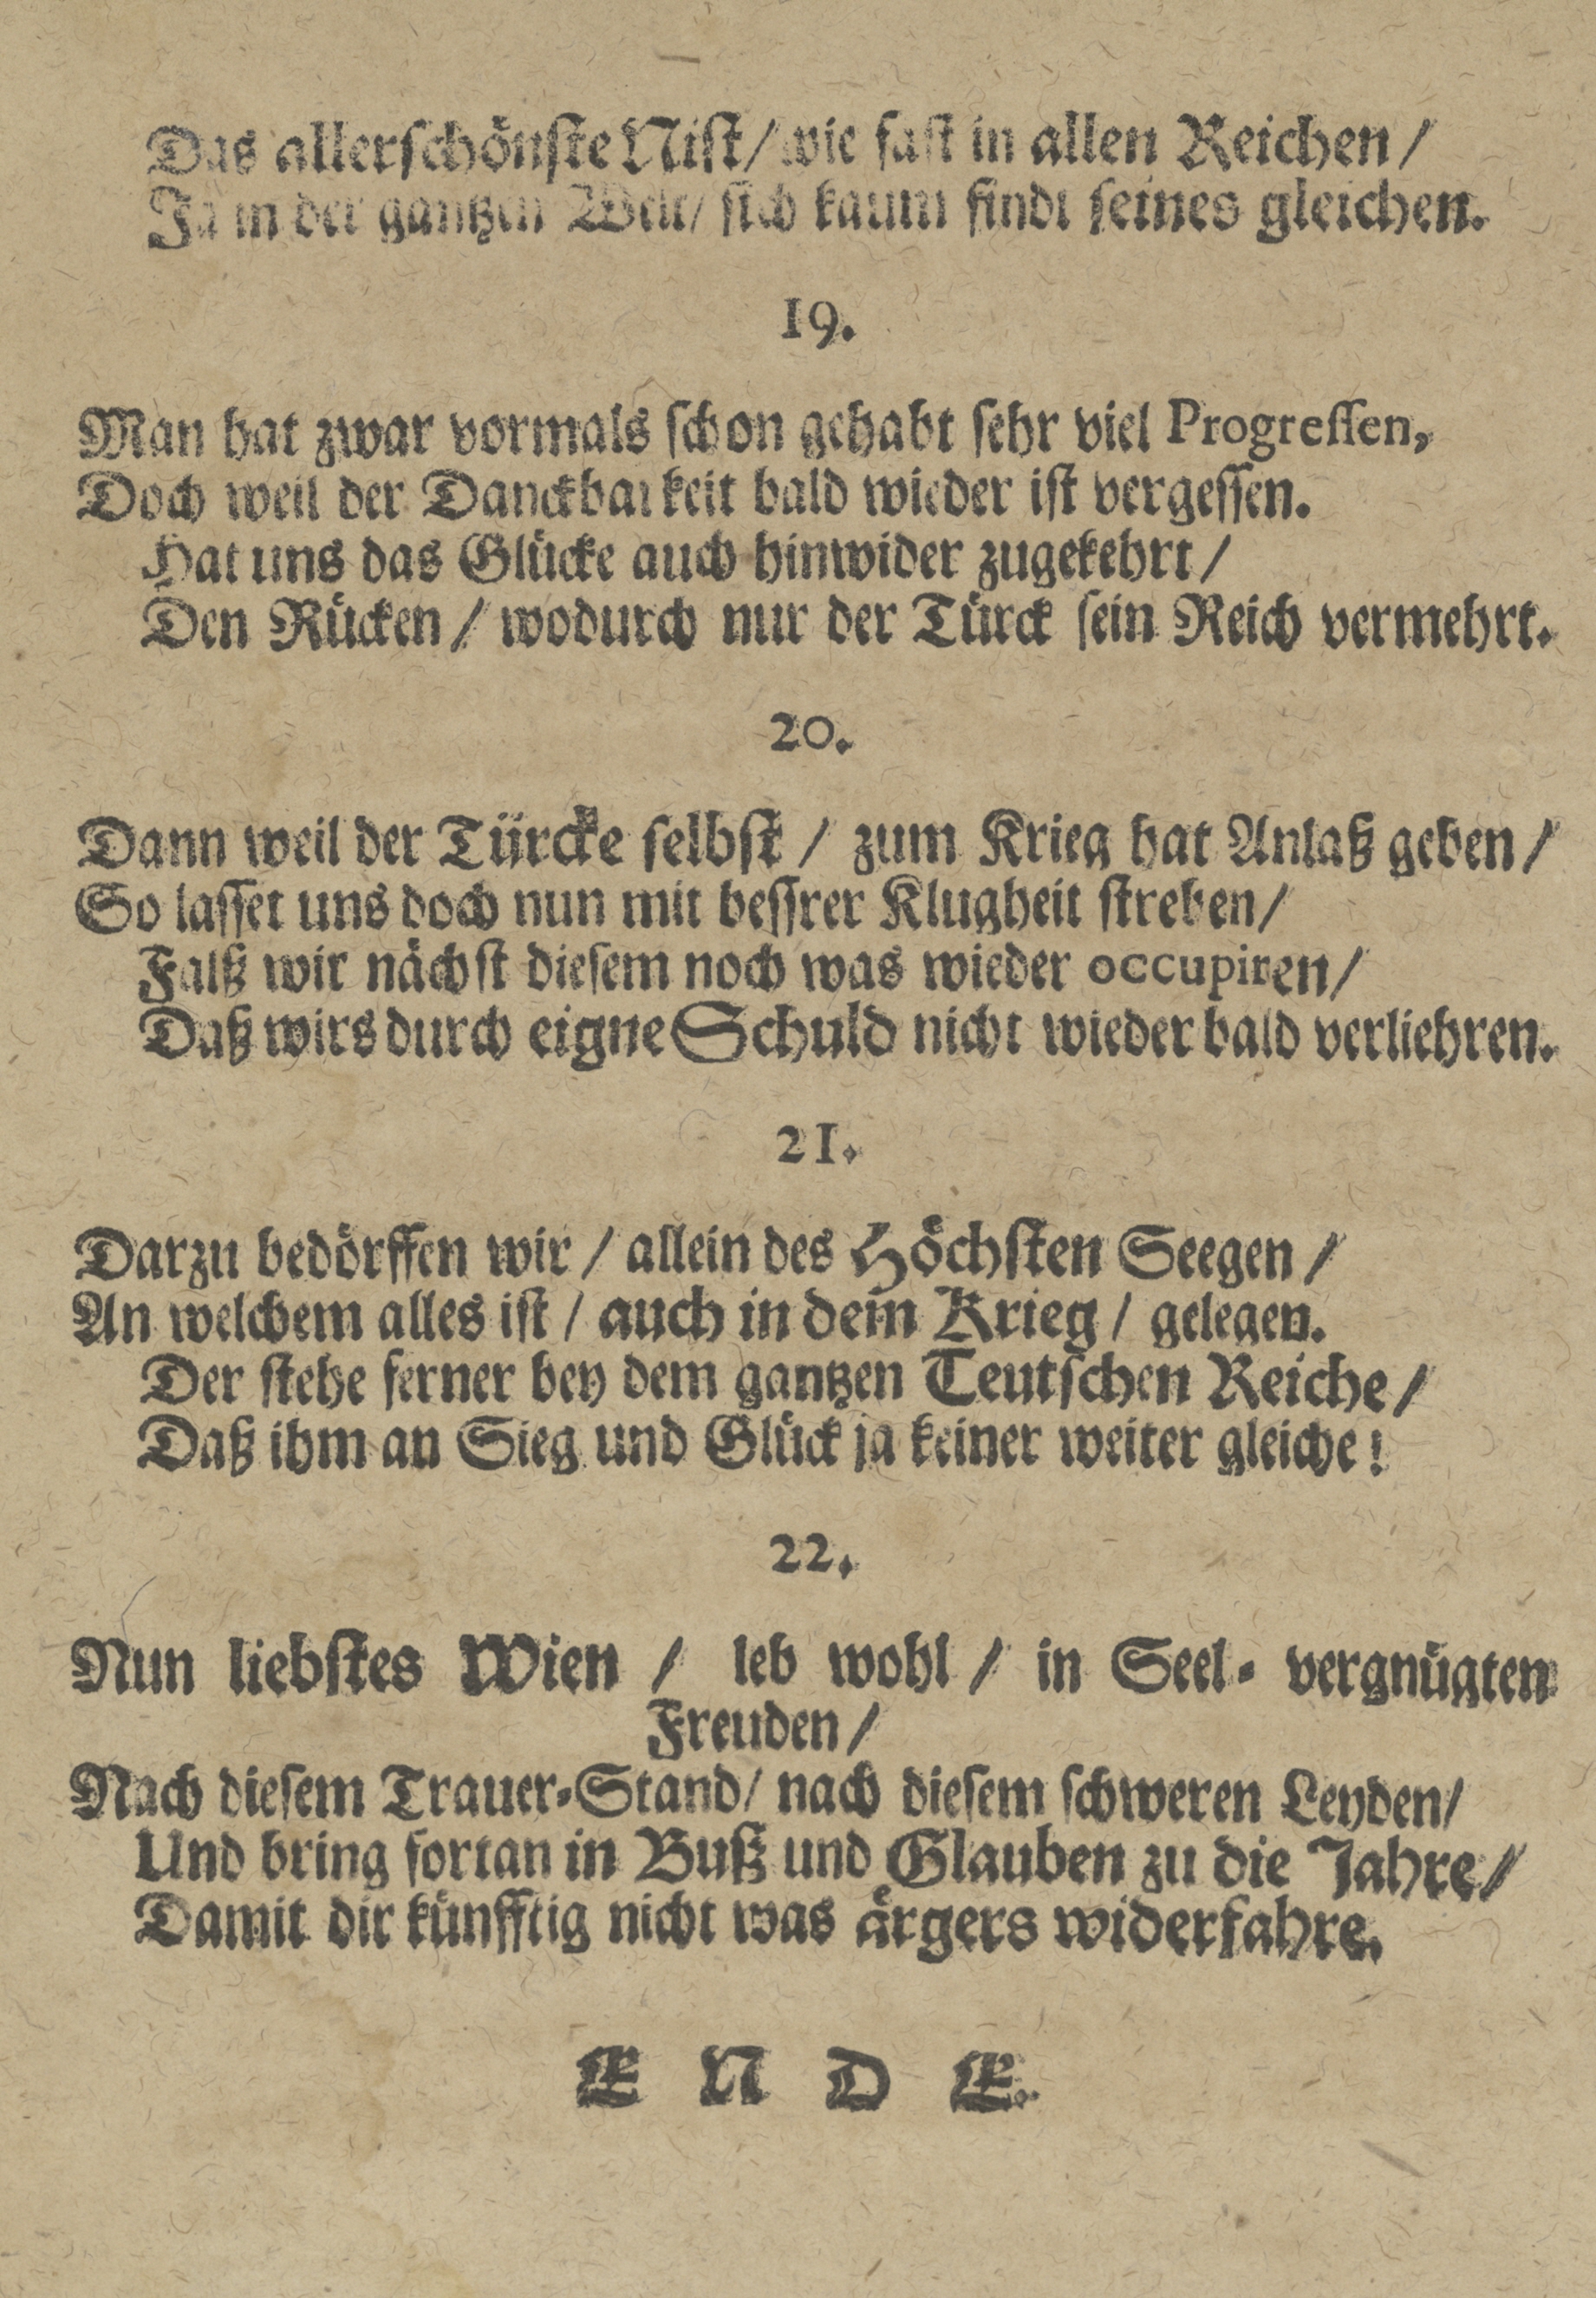 Das allerſchönſte Niſt/ wie faſt in allen Reichen/
Ja in der gantzen Welt/ ſich kaum findt ſeines gleichen.
19.
Man hat zwar vormals ſchon gehabt ſehr viel Progreſſen,
Doch weil der Danckbarkeit bald wieder iſt vergeſſen.
Hat uns das Glücke auch hinwider zugekehrt/
Den Rücken/ wodurch nur der Türck ſein Reich vermehrt.
20.
Dann weil der Türcke ſelbſt/ zum Krieg hat Anlaß geben/
So laſſet uns doch nun mit beſſrer Klugheit ſtreben/
Falß wir nächſt dieſem noch was wieder occupiren/
Daß wirs durch eigne Schuld nicht wieder bald verliehren.
21.
Darzu bedörffen wir/ allein des Höchſten Seegen/
An welchem alles iſt/ auch in dem Krieg/ gelegen.
Der ſtehe ferner bey dem gantzen Teutſchen Reiche/
Daß ihm an Sieg und Glück ja keiner weiter gleiche!
22.
Nun liebſtes Wien/ leb wohl/ in Seel-vergnügten
Freuden/
Nach dieſem Trauer-Stand/ nach dieſem ſchweren Leyden/
Und bring fortan in Buß und Glauben zu die Jahre/
Damit dir künfftig nicht was ärgers widerfahre.
ENDE.